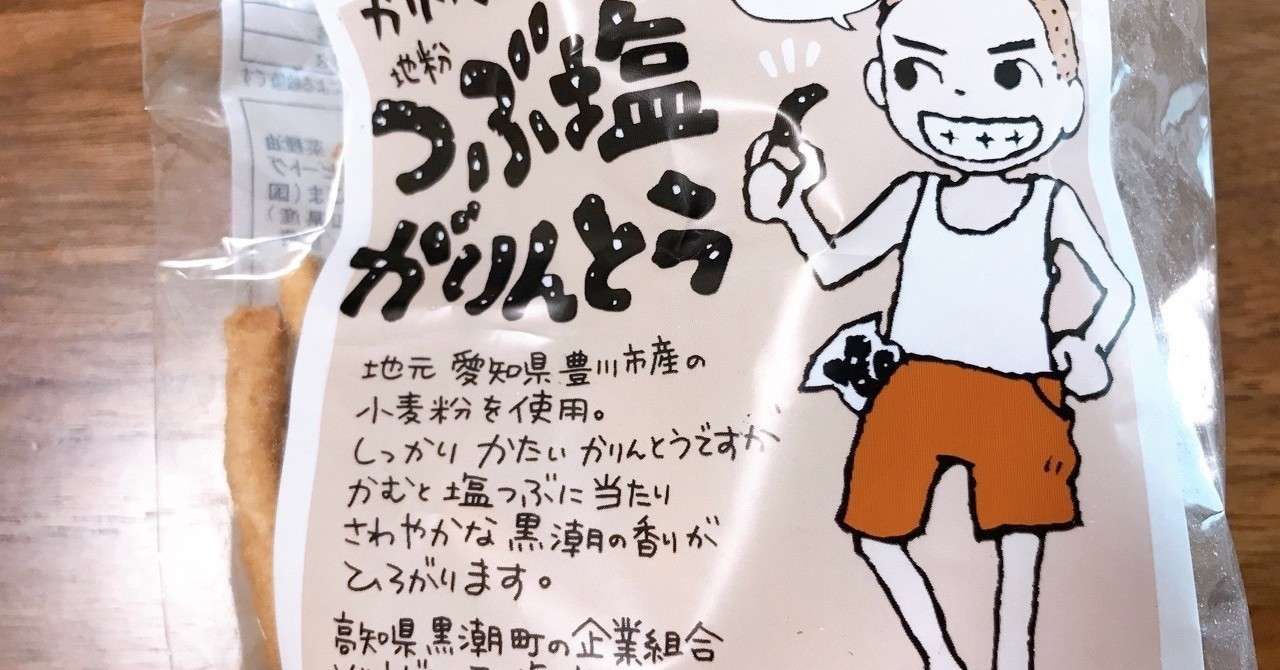 地粉
つぶ塩
がりんとう
地元 愛知県豊川市産の
小麦粉を使用。
しっかり かたい かりんとうですが
かむと 塩つぶに 当たり
さわやかな 黒潮の香りが
ひろがります。
高知県黒潮町の企業組合